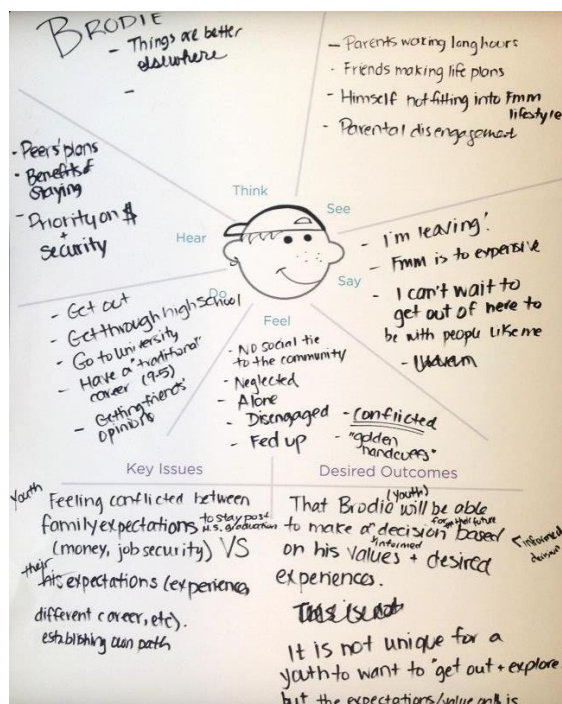 BRODIE
- Things are better
elsewhere
-
- Parents working long hours
- Friends making life plans
- Himself not fitting into Fmm
lifestyle
- Parental disengagement
- Peers' plans
- Benefits of
Staying
- Priority on $
+
security
Think
See
Hear
Say
Do
Feel
- I'm leaving!
- Fmm is to expensive
- I can't wait to
get out of here to
be with people like me
- Get out
- Get through high school
- Go to university
- Have a "traditional"
career (9-5)
- Getting friends'
opinions
- No social tie
to the community
- Neglected
- Alone
- Disengaged
- Fed up
- Conflicted
- "golden
handcuffs"
Key Issues
Youth
Feeling conflicted between
family expectations to stay post
H.S. graduation
(money, job security) VS
their
his expectations (experience,
different career, etc).
establishing own path
Desired Outcomes
(youth)
That Brodie will be able
to make a decision based
informed
for their future
on his values + desired
experiences.
< informed
decision
It is not unique for a
youth to want to "get out + explore
but the expectations/value on $ is